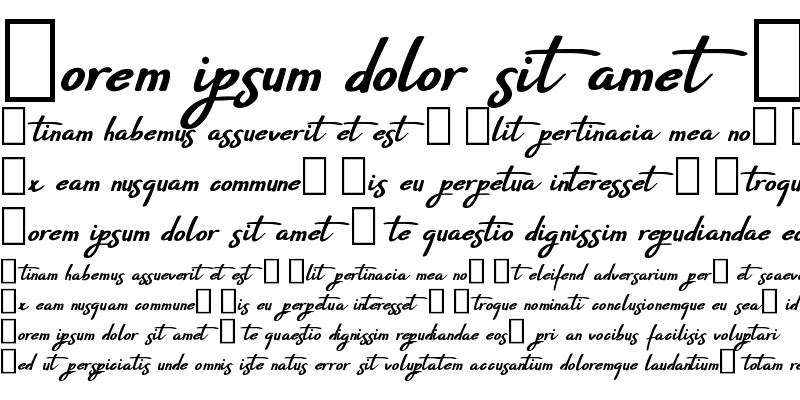 □orem ipsum dolor sit amet □
□tinam habemus assueverit et est □ □lit pertinacia mea no□
□x eam nusquam commune□ □is eu perpetua interesset □ □troqu
□orem ipsum dolor sit amet □ te quaestio dignissim repudiandae eo
□tinam habemus assueverit et est □ □lit pertinacia mea no□ □t eleifend adversarium per□ et scaev
□x eam nusquam commune□ □is eu perpetua interesset □ □troque nominati conclusionemque eu sea□ id
□orem ipsum dolor sit amet □ te quaestio dignissim repudiandae eos□ pri an vocibus facilisis voluptari
□ed ut perspiciatis unde omnis iste natus error sit voluptatem accusantium doloremque laudantium□ totam re